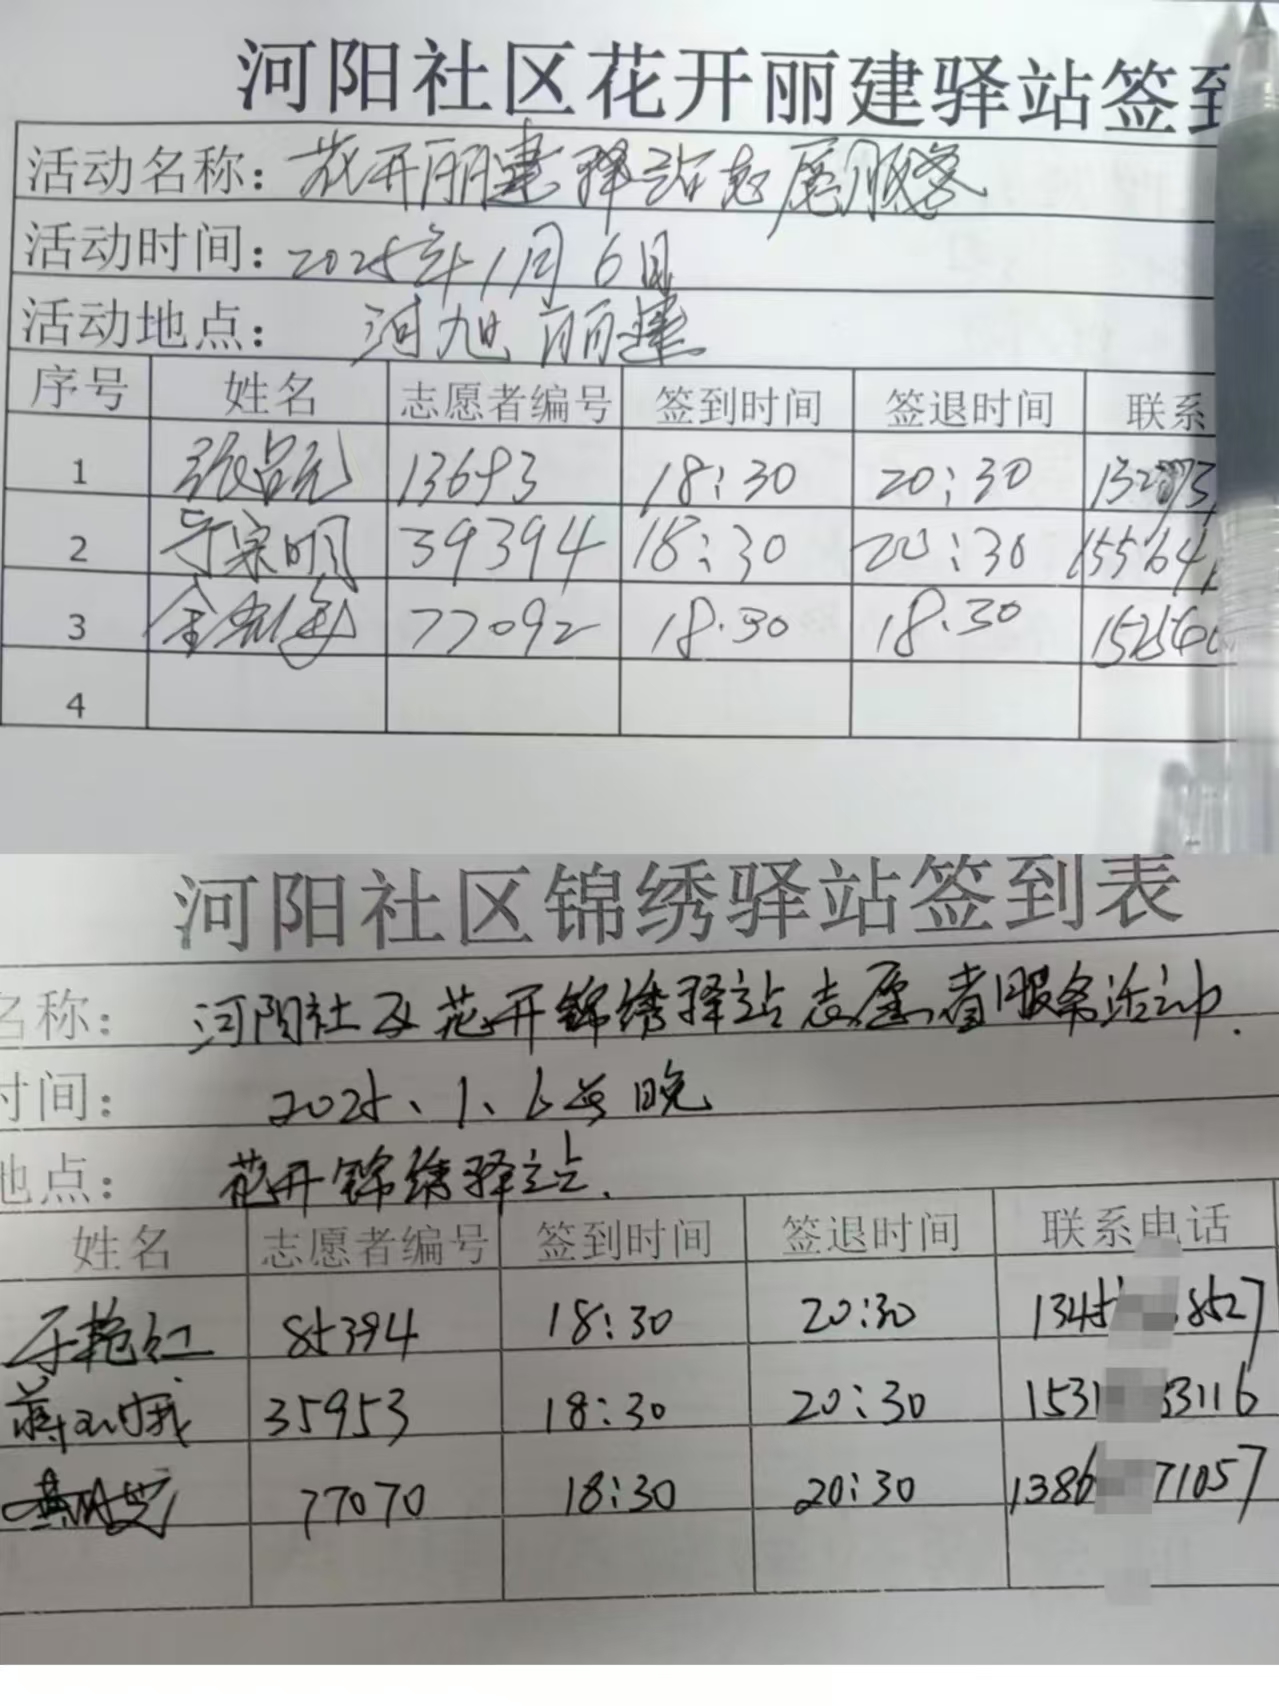 河阳社区花开丽建驿站签到
活动名称：花开丽建驿站志愿服务
活动时间：2025年1月6日
活动地点：河旭丽建
序号 姓名 志愿者编号 签到时间 签退时间 联系
1 13693 18:30 20:30
2 于宗明 39394 18:30 20:30 155641
3 77092 18.30 18.30
4
河阳社区锦绣驿站签到表
名称：河阳社区花开锦绣驿站志愿者服务活动.
时间：2025、1、6号晚
地点：花开锦绣驿站.
姓名 志愿者编号 签到时间 签退时间 联系电话
于艳红 85394 18:30 20:30 1345 8527
35953 18:30 20:30 1531 3116
77070 18:30 20:30 1386 71057